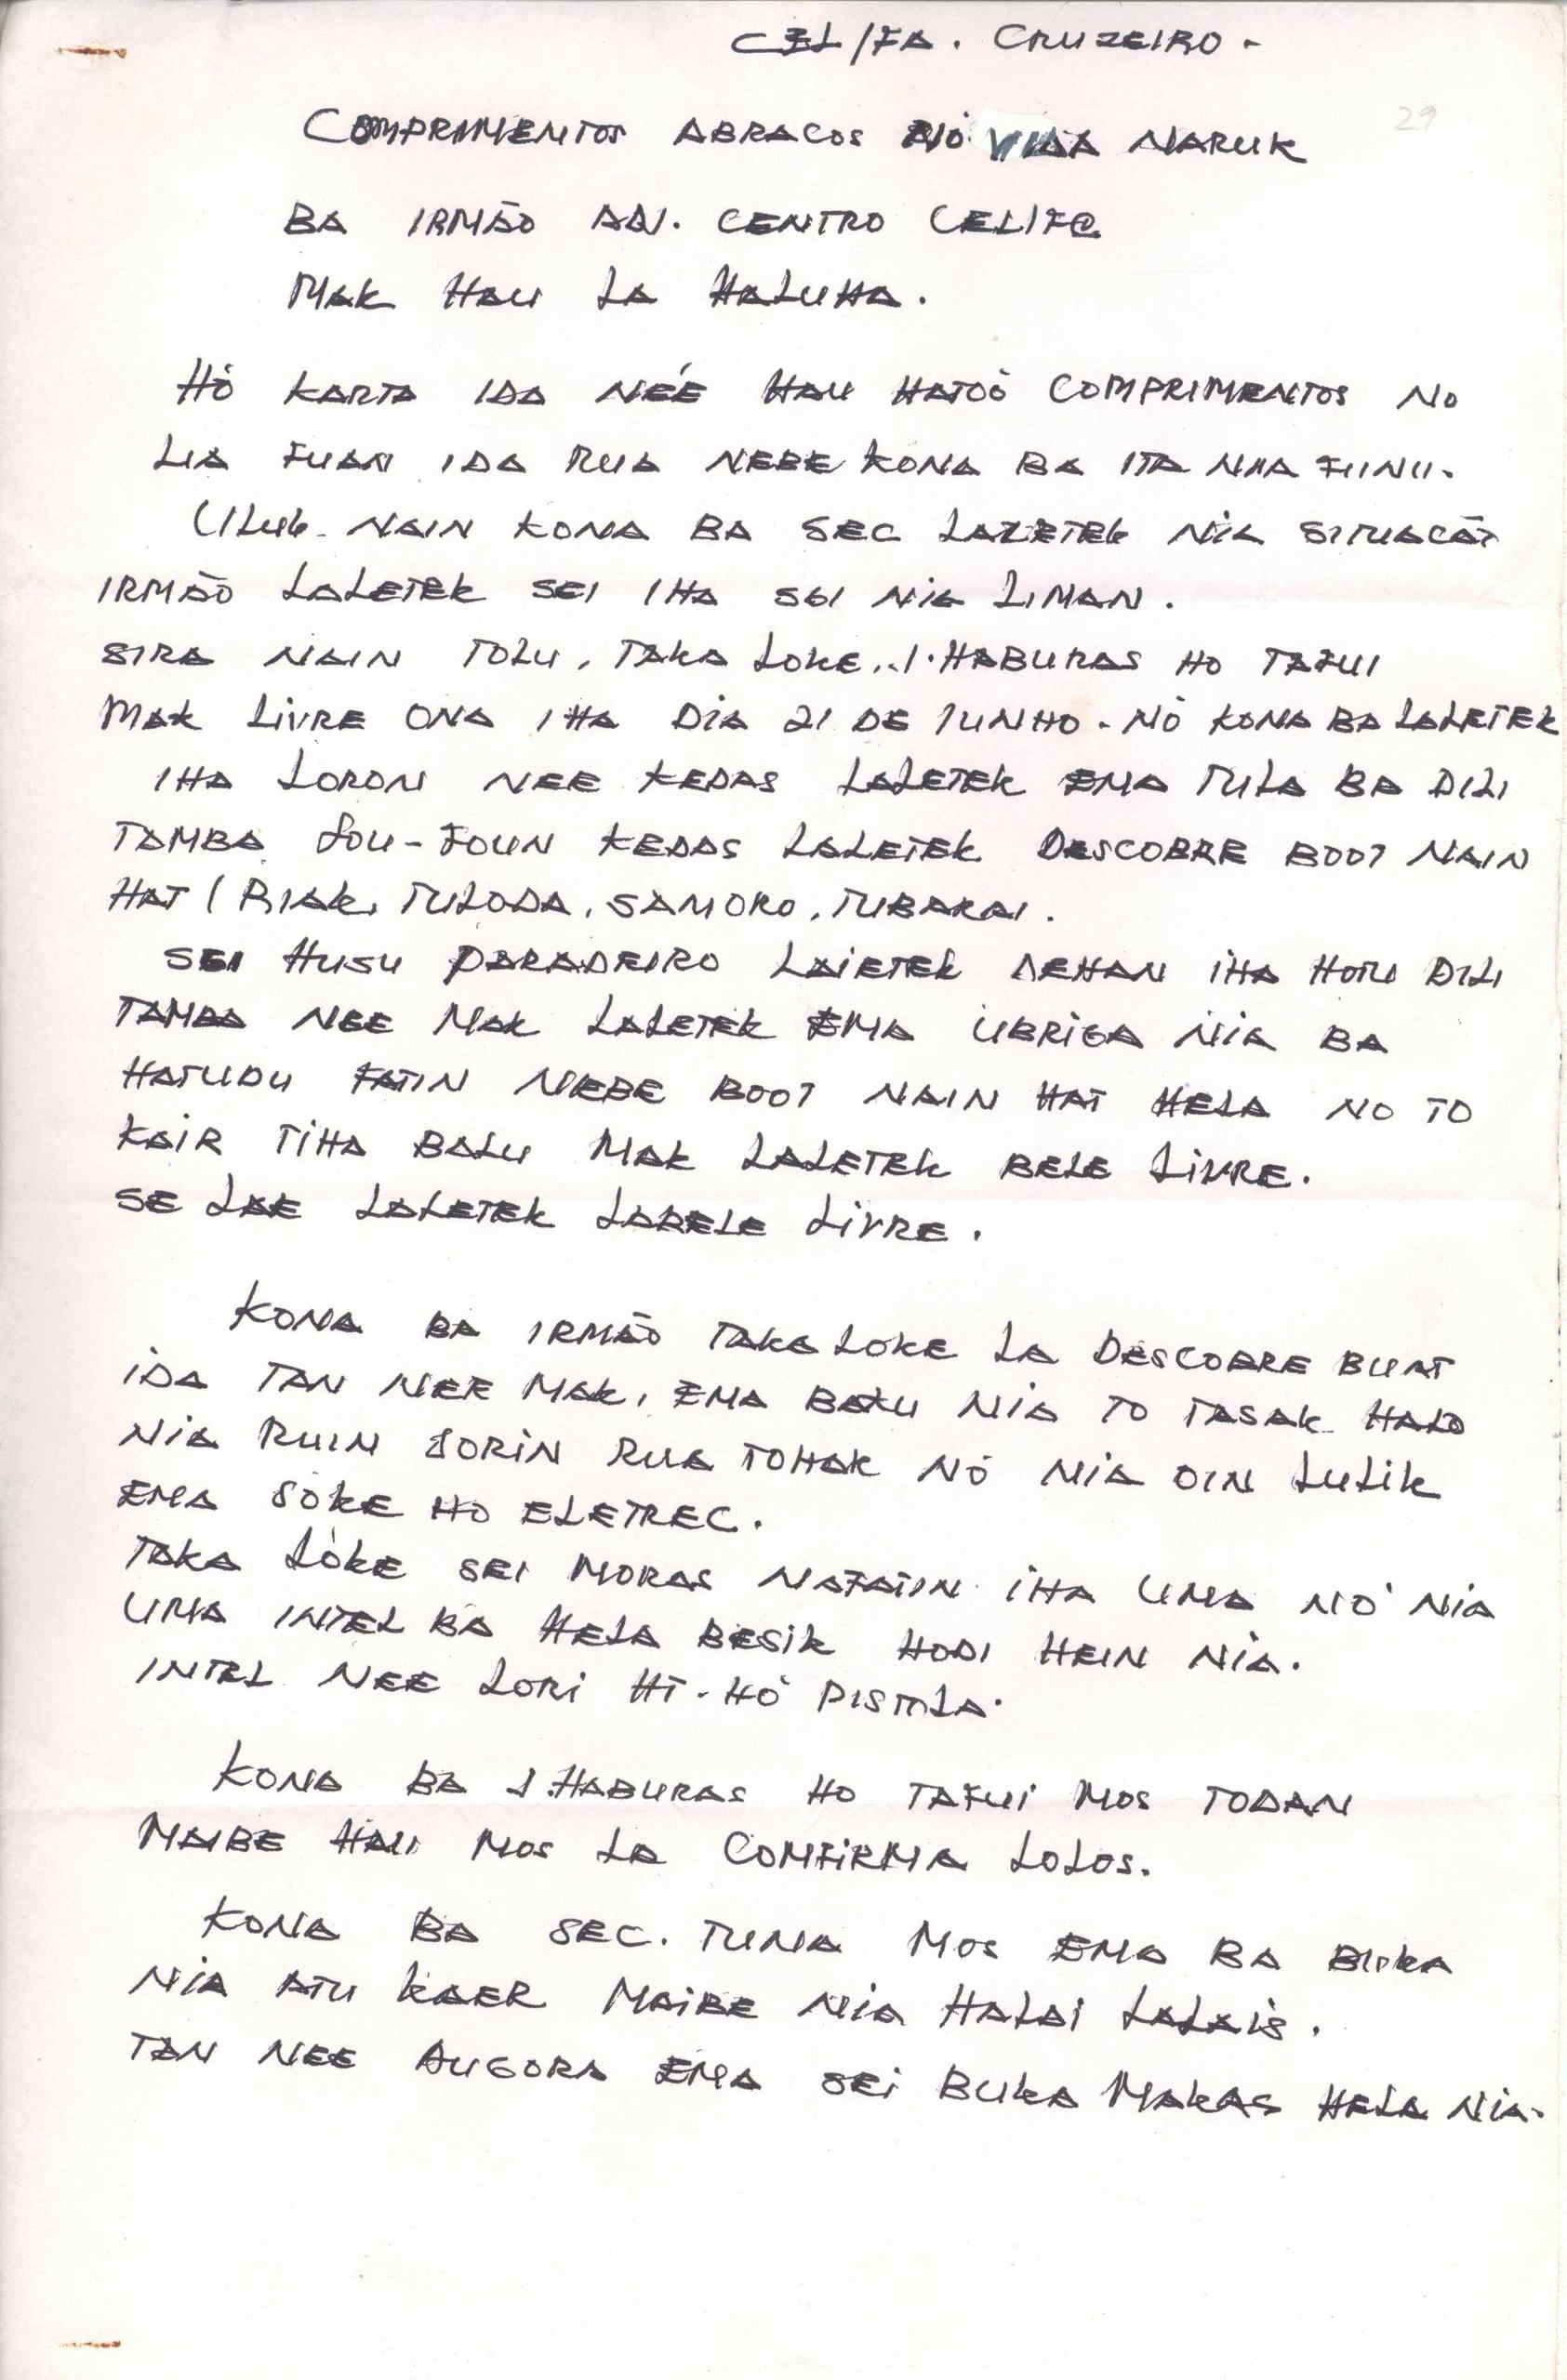 CEL/FA. CRUZEIRO -
29
COMPRIMENTOS ABRACOS NÓ VIDA NARUK
BA IRMÃO ADJ. CENTRO CEL/FA
MAK HAU LA HALUHA.
HÓ KARTA IDA NÉE HAU HATOÓ COMPRIMENTOS NO
LIA FUAN IDA RUA NEBE KONA BA ITA NIIA FUNU.
ULUK NAIN KONA BA SEC LALETEK NIA SITUACÃO
IRMÃO LALETEK SEI IHA SGI NIA LIMAN.
SIRA NAIN TOLU, TAKA LOKE, L.HABURAS HO TAFUI
MAK LIVRE ONA IHA DIA 21 DE JUNHO - NÓ KONA BA LALETEK
IHA LORON NEE KEDAS LALETEK EMA TULA BA DILI
TAMBA FOU-FOUN KEDAS LALETEK DESCOBRE BOOT NAIN
HAT (RIAK, TULODA, SAMOKO, TUBAKAI.
SGI HUSU PARADEIRO LALETEK DEHAN IHA HOTU DILI
TAMBA NEE MAK LALETEK EMA UBRIGA NIA BA
HATUDU FATIN NEBE BOOT NAIN HAT HELA NO TO
KAIR TIHA BALU MAK LALETEK BELE LIVRE.
SE LAE LALETEK LABELE LIVRE.
KONA BA IRMÃO TAKA LOKE LA DESCOBRE BUAT
IDA TAN NEE MAK, EMA BAKU NIA TO TASAK HALO
NIA RUIN SORIN RUA TOHAK NÓ NIA OIN LULIK
EMA SOKE HO ELETREC.
TAKA LÓKE SEI MORAS NAFATIN IHA UMA NÓ NIA
UMA INTEL BA HELA BESIK HODI HEIN NIA.
INTEL NEE LORI HT-HÓ PISTOLA.
KONA BA L.HABURAS HO TAFUI MOS TODAN
MAIBE HAU MOS LA COMFIRMA LOLOS.
KONA BA SEC. TUNA MOS EMA BA BUKA
NIA ATU KAER MAIBE NIA HALAI LALAIS.
TAN NEE AUGORA EMA SEI BUKA MAKAS HELA NIA.